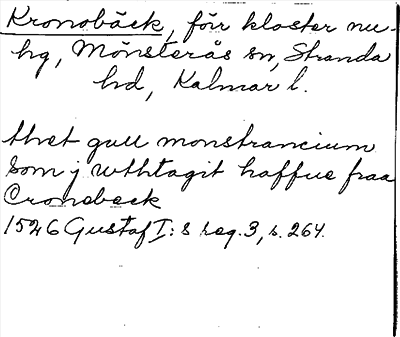 Kronobäck, förr kloster nu-
hg, Mönsterås sn, Stranda
hd, Kalmar l.
thet gull monstrancium
som j wthtagit haffue fraa
Cronobeck
1526 Gustaf I:s reg. 3, s. 264.